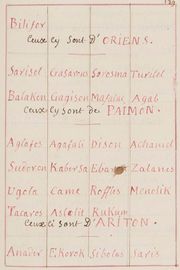 139
Bilifor
Ceux cy sont D'ORIENS.
Sarisel Gasarons Sorosma Turitel
Balaken Gagison Mafalac Agab
Ceux cy sont de PAIMON.
Aglafos Agafali Dison Achaniel
Sudoron Kabersa Ebaron Zalanes
Ugola Came Roffles Menolik
Tacaros Astolit Rukum
Ceux ci sont D'ARITON.
Anader Ekorok Sibolas Saris